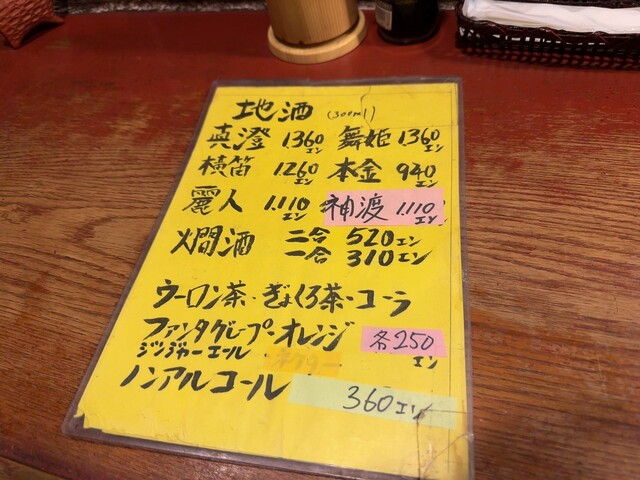 地酒 (300ml)
真澄 1360エン 舞姫 1.360エン
横笛 1260エン 本金 940エン
麗人 1.110エン 神渡 1.110エン
燗酒 二合 520エン
一合 310エン
ウーロン茶・ぎょくろ茶・コーラ
ファンタグレープ・オレンジ 各250エン
ジンジャーエール ネクター
ノンアルコール 360エン